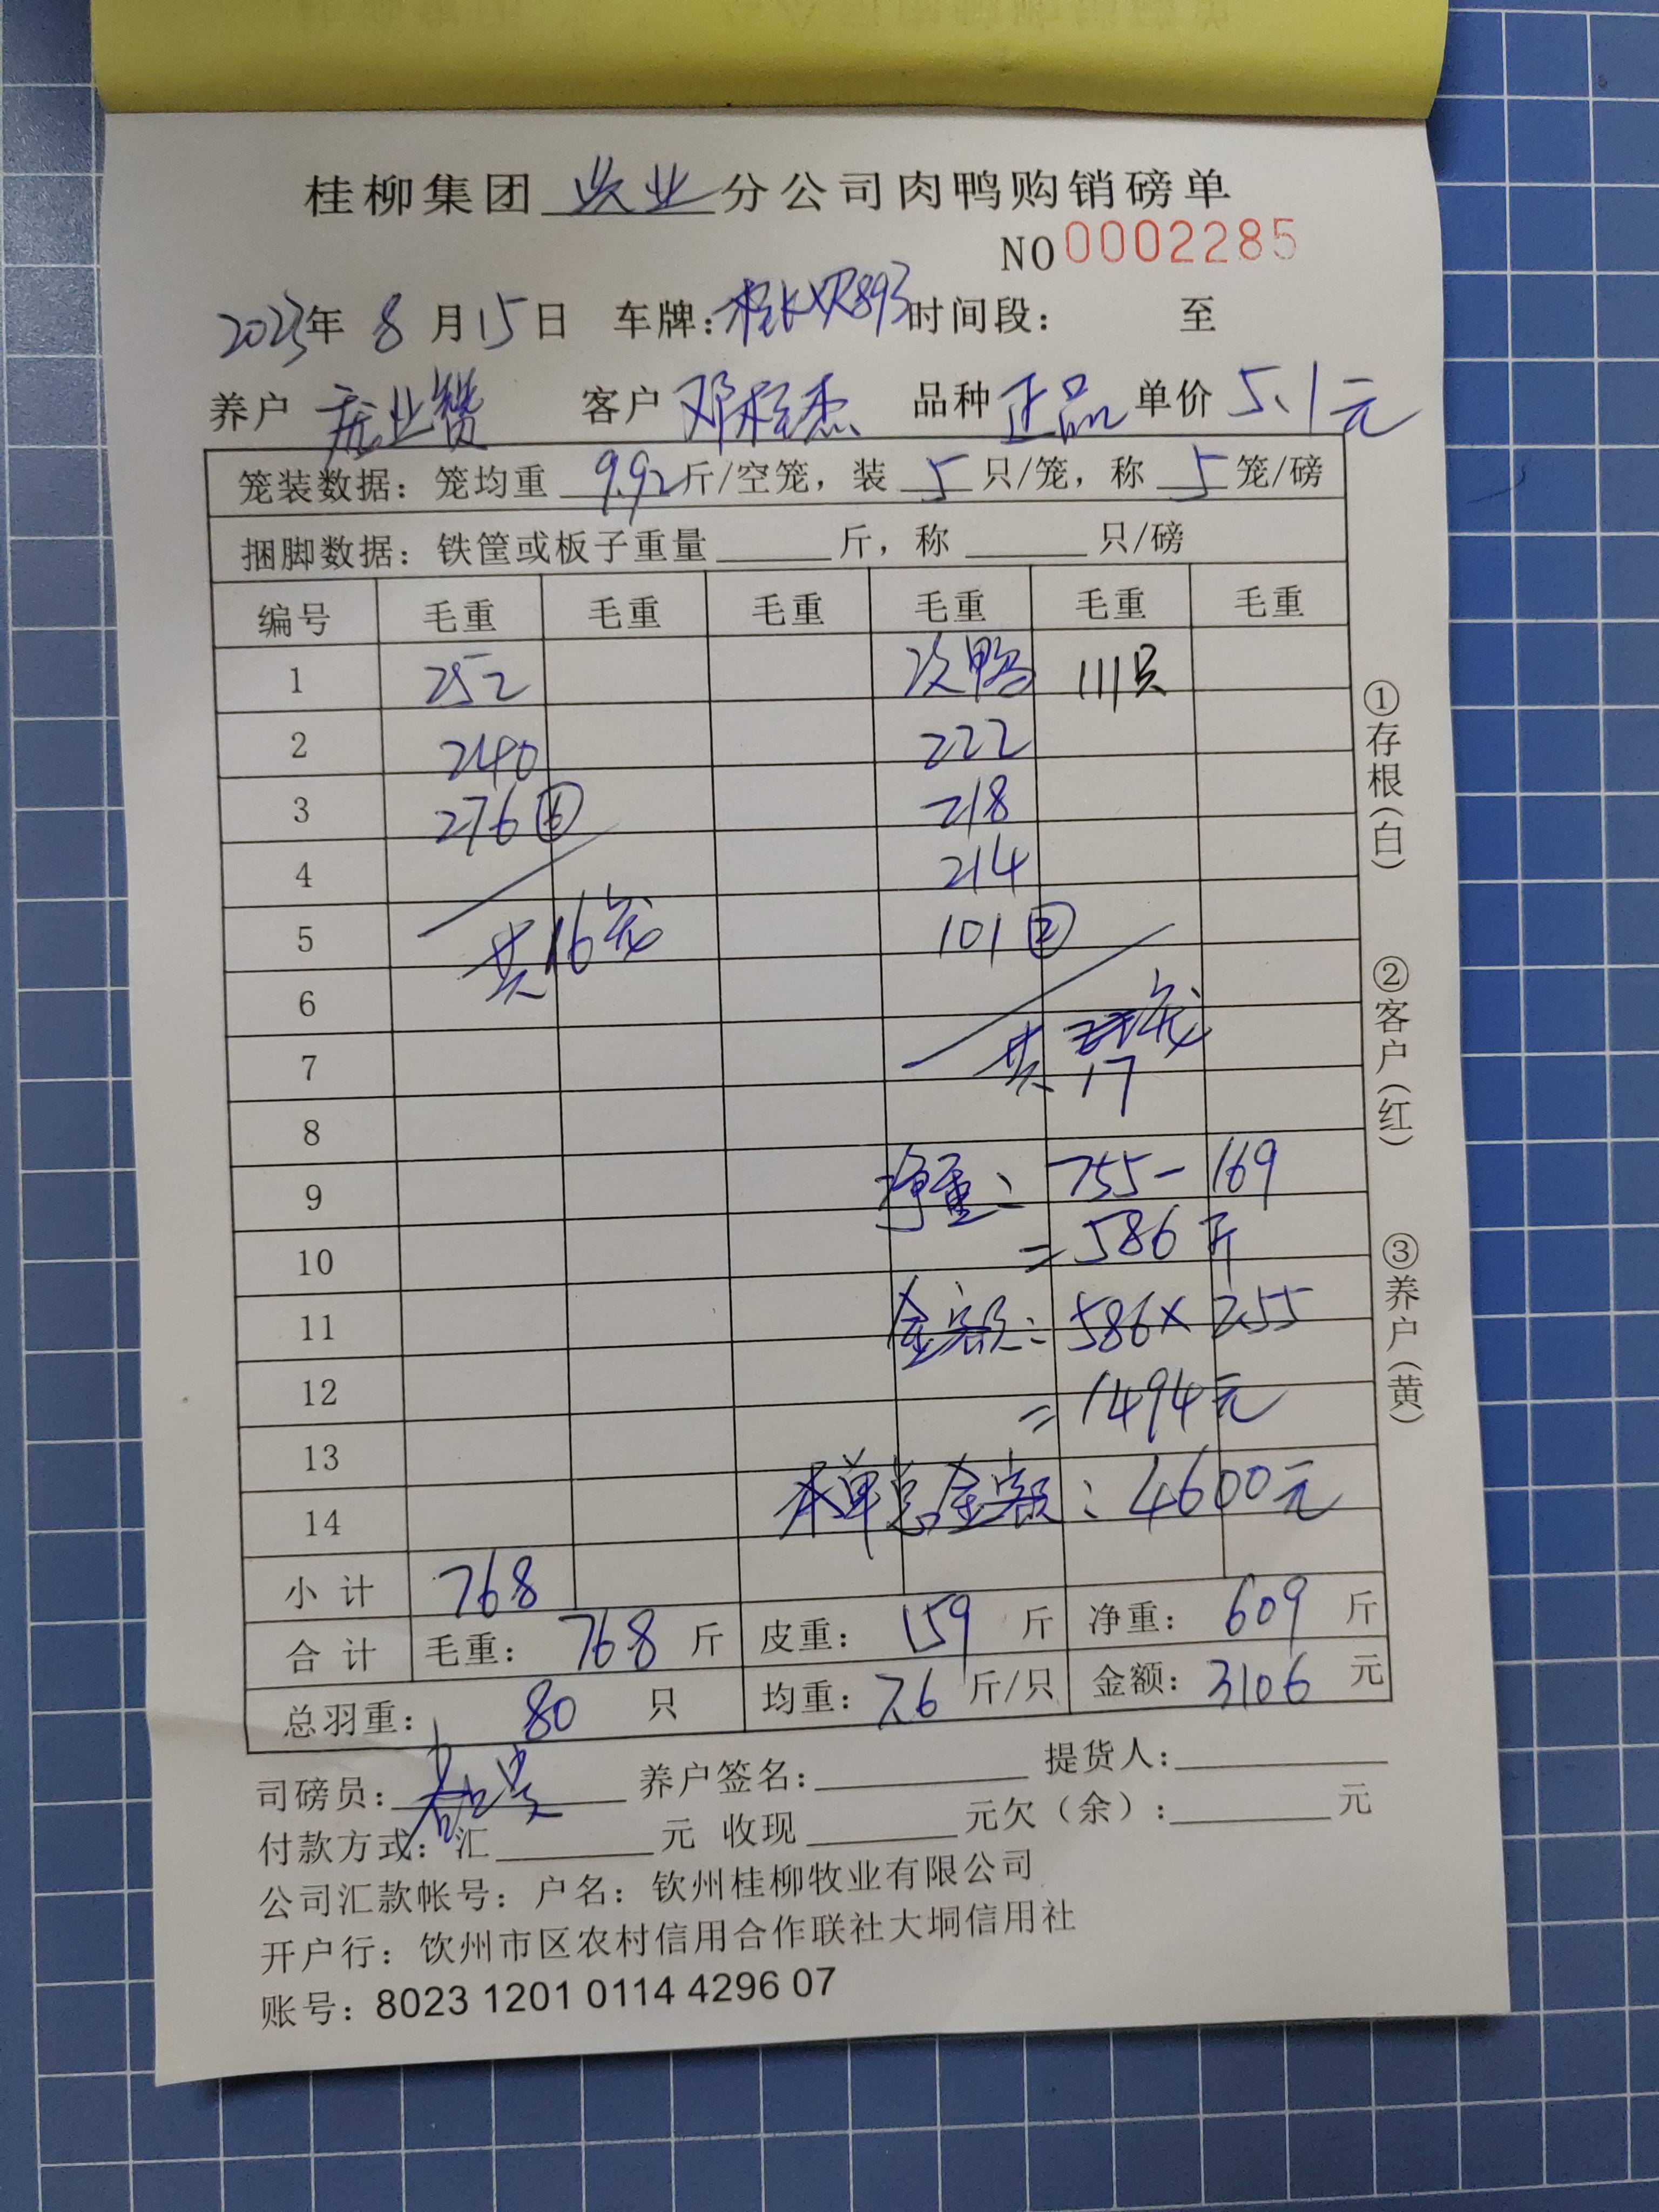 桂柳集团 兴业 分公司肉鸭购销磅单
NO 0002285
2023年 8 月 15 日 车牌: 桂KXR893 时间段: 至
养户 庞业赞 客户 邓程杰 品种 正品 单价 5.1元
笼装数据: 笼均重 9.92 斤/空笼, 装 5 只/笼, 称 5 笼/磅
捆脚数据: 铁筐或板子重量 斤, 称 只/磅
编号 毛重 毛重 毛重 毛重 毛重 毛重
1 252 次鸭 111只
2 240 222
3 276 ⑥ 218
4 214
5 共16笼 101 ②
6
7 共 17 笼
8
9 净重: 755-169
10 =586斤
11 金额: 586×2.55
12 =1494元
13
本单总金额: 4600元
14
小 计 768
合 计 毛重: 768 斤 皮重: 159 斤 净重: 609 斤
总羽重: 80 只 均重: 7.6 斤/只 金额: 3106 元
司磅员: 养户签名: 提货人:
付款方式: 汇 元 收现 元欠(余): 元
公司汇款帐号: 户名: 钦州桂柳牧业有限公司
开户行: 钦州市区农村信用合作联社大垌信用社
账号: 8023 1201 0114 4296 07
①存根(白)
②客户(红)
③养户(黄)